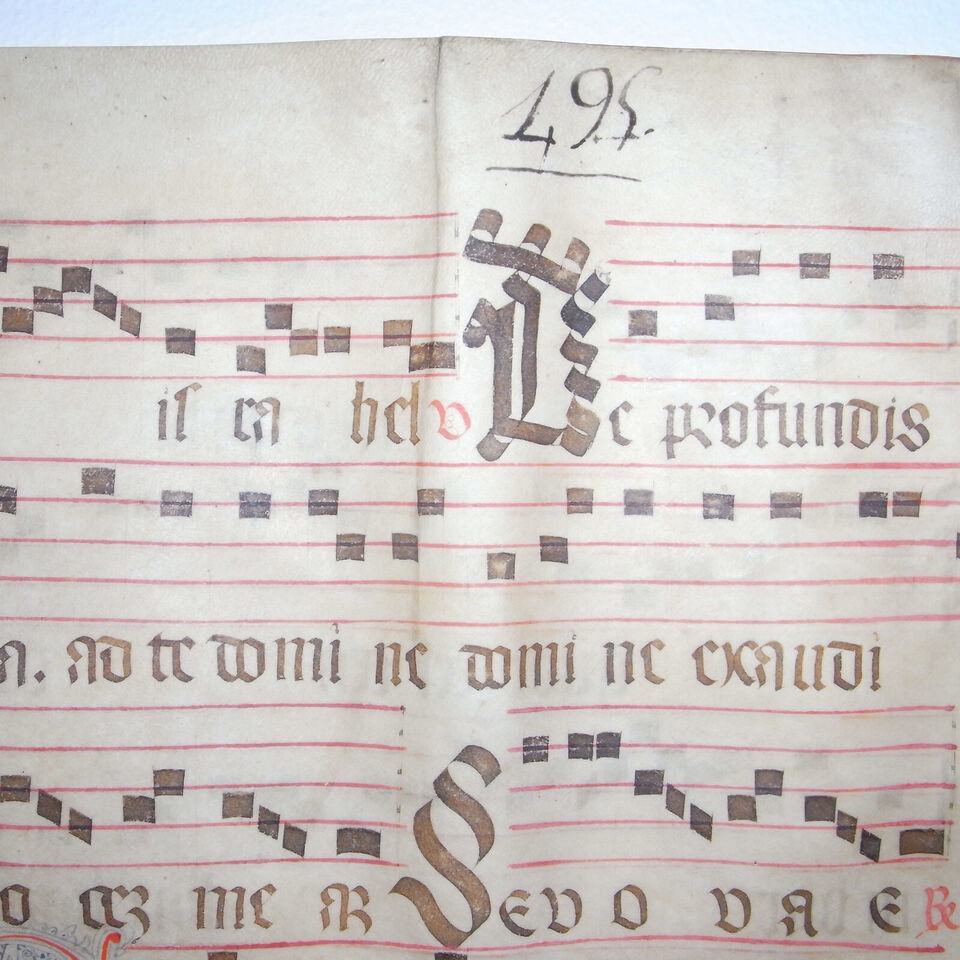 495.
is ra hel v De profundis
a. ad te domi ne domi ne exaudi
o cez me ar Sevovae